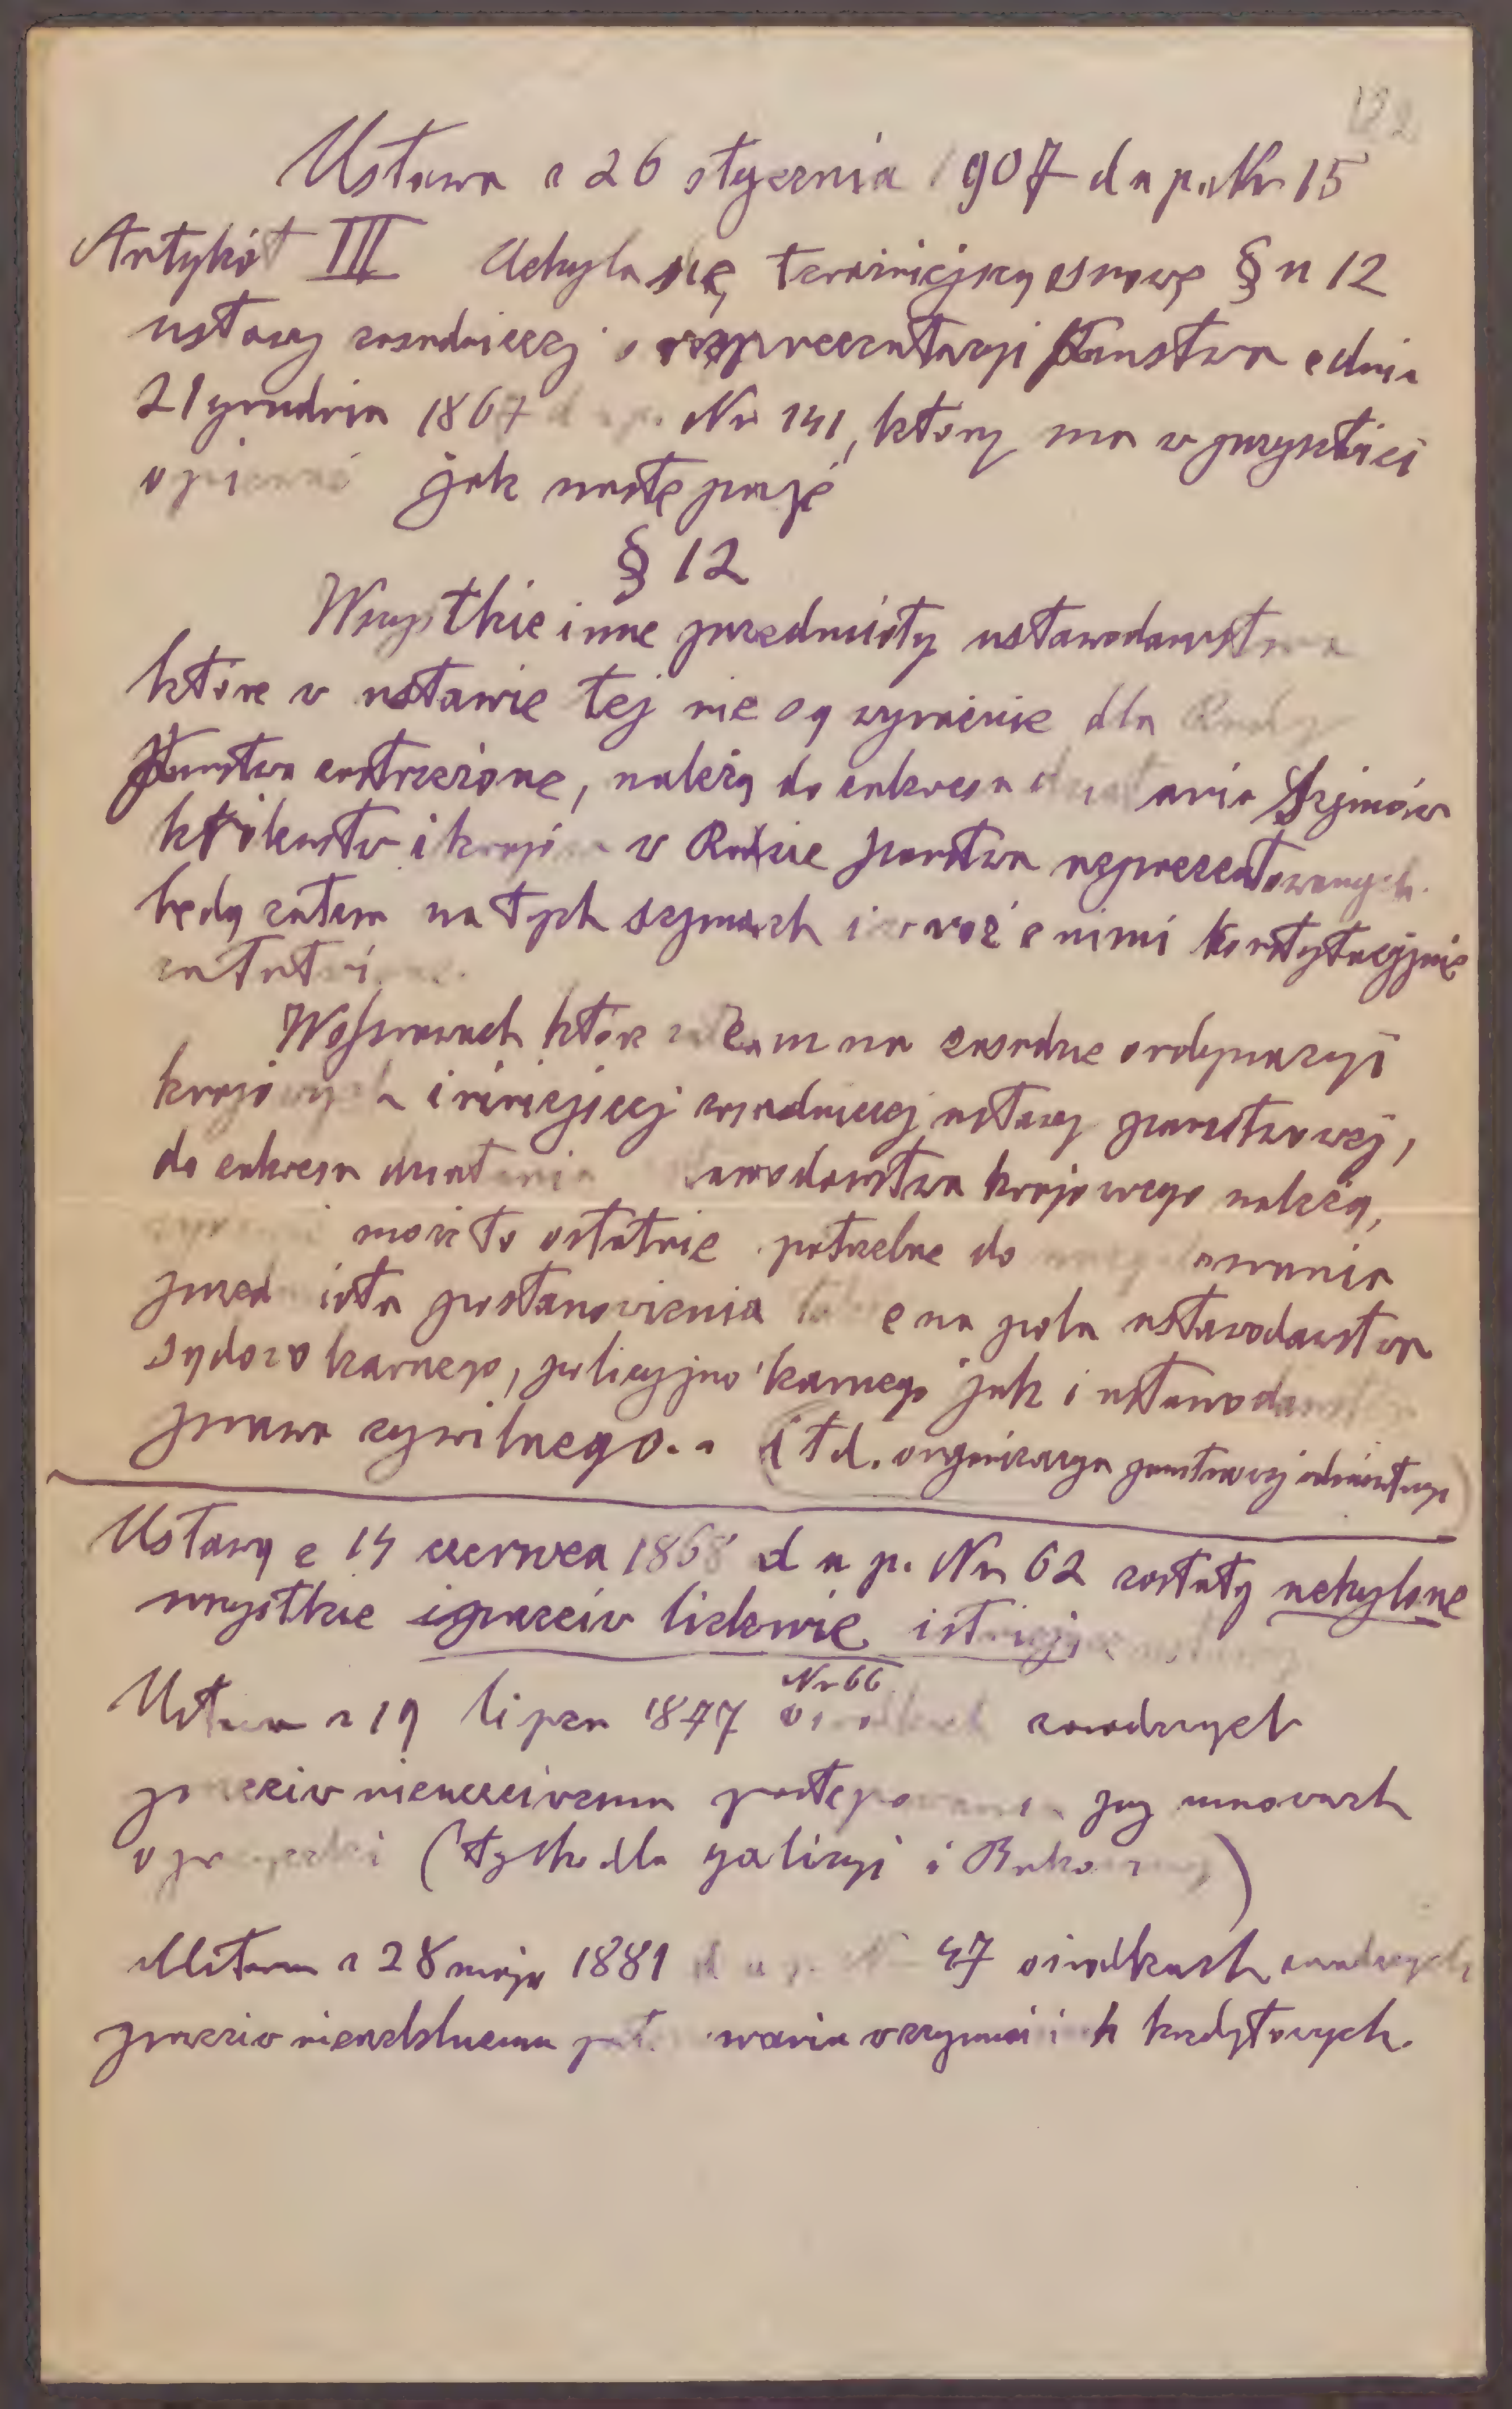 Ustawa z 26 stycznia 1907 d u p. Nr 15
Artykół III Uchyla się teraźniejszą osnowę § u 12
ustawy zasadniczej o reprezentacyi Państwa z dnia
21 grudnia 1867 d u p. Nr 141, który ma w przyszłości
opiewać jak następuje
§ 12
Wszystkie inne przedmioty ustawodawstwa
które w ustawie tej nie są wyraźnie dla Rady
Państwa zastrzeżone, należą do zakresu działania Sejmów
królestw i krajów w Radzie państwa reprezentowanych
będą zatem na tych sejmach i wraz z nimi konstytucyjnie
W sprawach które na zasadzie ordynacyi
krajowych i niniejszej zasadniczej ustawy państwowej,
do zakresu działania ustawodawstwa krajowego należą,
może to ostatnie potrzebne do
przedmiotu postanowienia także na polu ustawodawstwa
sądowo karnego, policyjno karnego jak i ustawodawstwa
prawa cywilnego.. (i t d. organizacya państwowej administracyi)
Ustawą z 14 czerwca 1868 d u p. Nr 62 zostały uchylone
wszystkie przeciw lichwie istniejące ustawy
Nr 66
Ustawa z 19 lipca 1877 o środkach zaradczych
przeciw nieuczciwemu postępowaniu przy umowach
o pożyczki (tylko dla galicyi i Bukowiny)
Ustawa z 28 maja 1881 d u p. Nr 47 o środkach zaradczych
przeciw nierzetelnemu postępowaniu w czynnościach kredytowych.